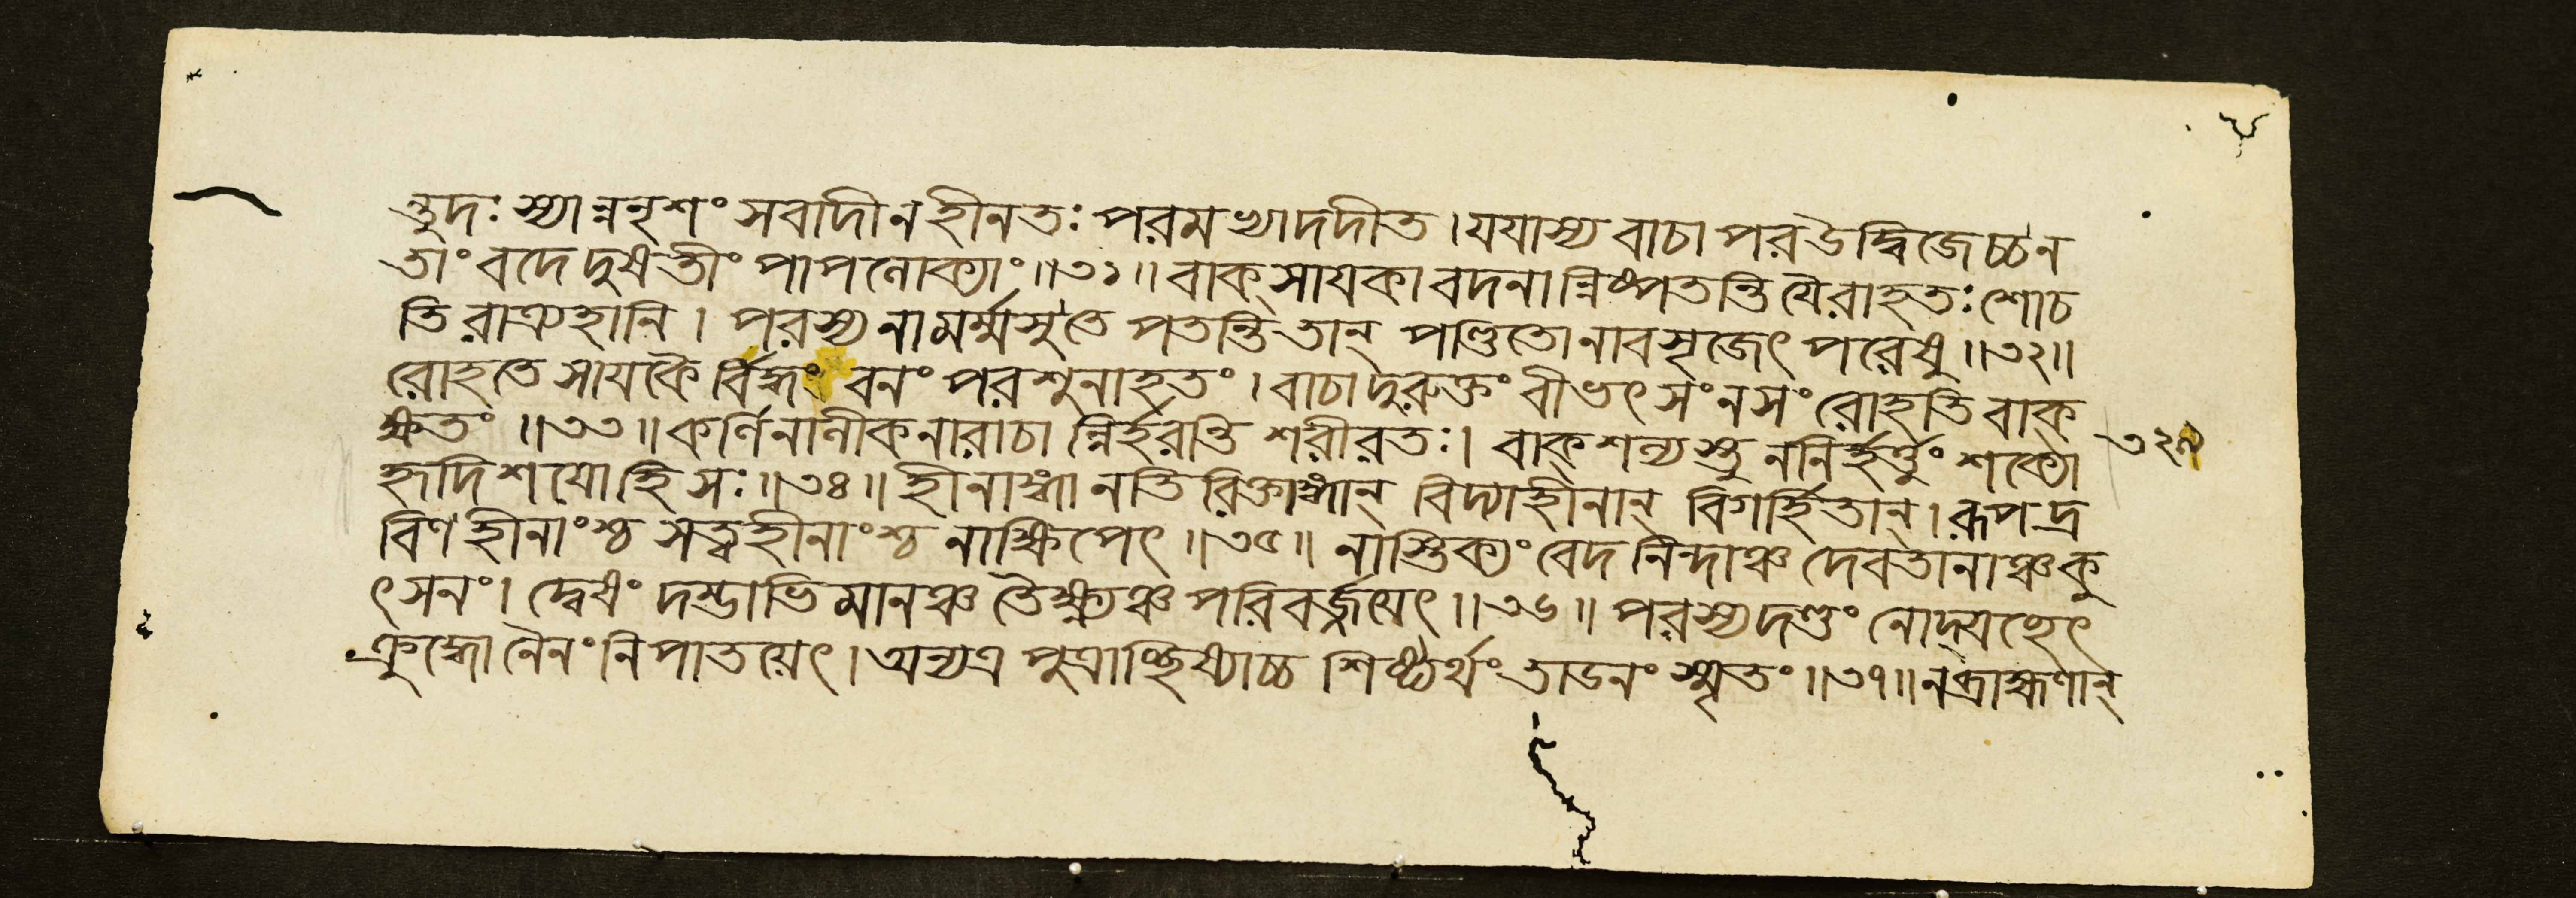 ন্তুদঃ স্যান্ননৃশংসবাদীনহীনতঃ পরমভ্যাদদীত । যযাস্য বাচা পরউদ্বিজেচ্চন
তাং বদেদুষতীং পাপলোক্যাং ॥৩১॥ বাক্ সাযকাবদনান্নিষ্পতন্তি যৈরাহতঃ শোচ
তি রাত্র্যহানি । পরস্য নামর্ম্মসু তে পতন্তি তান্ পণ্ডিতোনাবসৃজেৎ পরেষু ॥৩২॥
রোহতে সাযকৈ র্বিদ্ধং বনং পরশুনাহতং । বাচাদুরুক্তং বীভৎসং নসং রোহতি বাক
ক্ষতং ॥৩৩॥ কর্ণিনালীকনারাচা ন্নির্হরন্তি শরীরতঃ । বাক্ শল্যস্তু ননির্হর্ত্তুং শক্যো
হৃদিশযোহি সঃ ॥৩৪॥ হীনাঙ্গানতিরিক্তাঙ্গান্ বিদ্যাহীনান্ বিগর্হিতান্ । রূপদ্র
বিণহীনাংশ্চ সত্ত্বহীনাংশ্চ নাক্ষিপেৎ ॥৩৫॥ নাস্তিক্যং বেদনিন্দাঞ্চ দেবতানাঞ্চ কু
ৎসনং । দ্বেষং দম্ভাভিমানঞ্চ তৈক্ষ্ণ্যঞ্চ পরিবর্জ্জযেৎ ॥৩৬॥ পরস্য দণ্ডং নোদ্যচ্ছেৎ
ক্রুদ্ধোনৈনং নিপাতযেৎ । অন্যত্র পুত্রাচ্ছিষ্যাচ্চ শিষ্ট্যর্থং তাডনং স্মৃতং ॥৩৭॥ নব্রাহ্মণান্